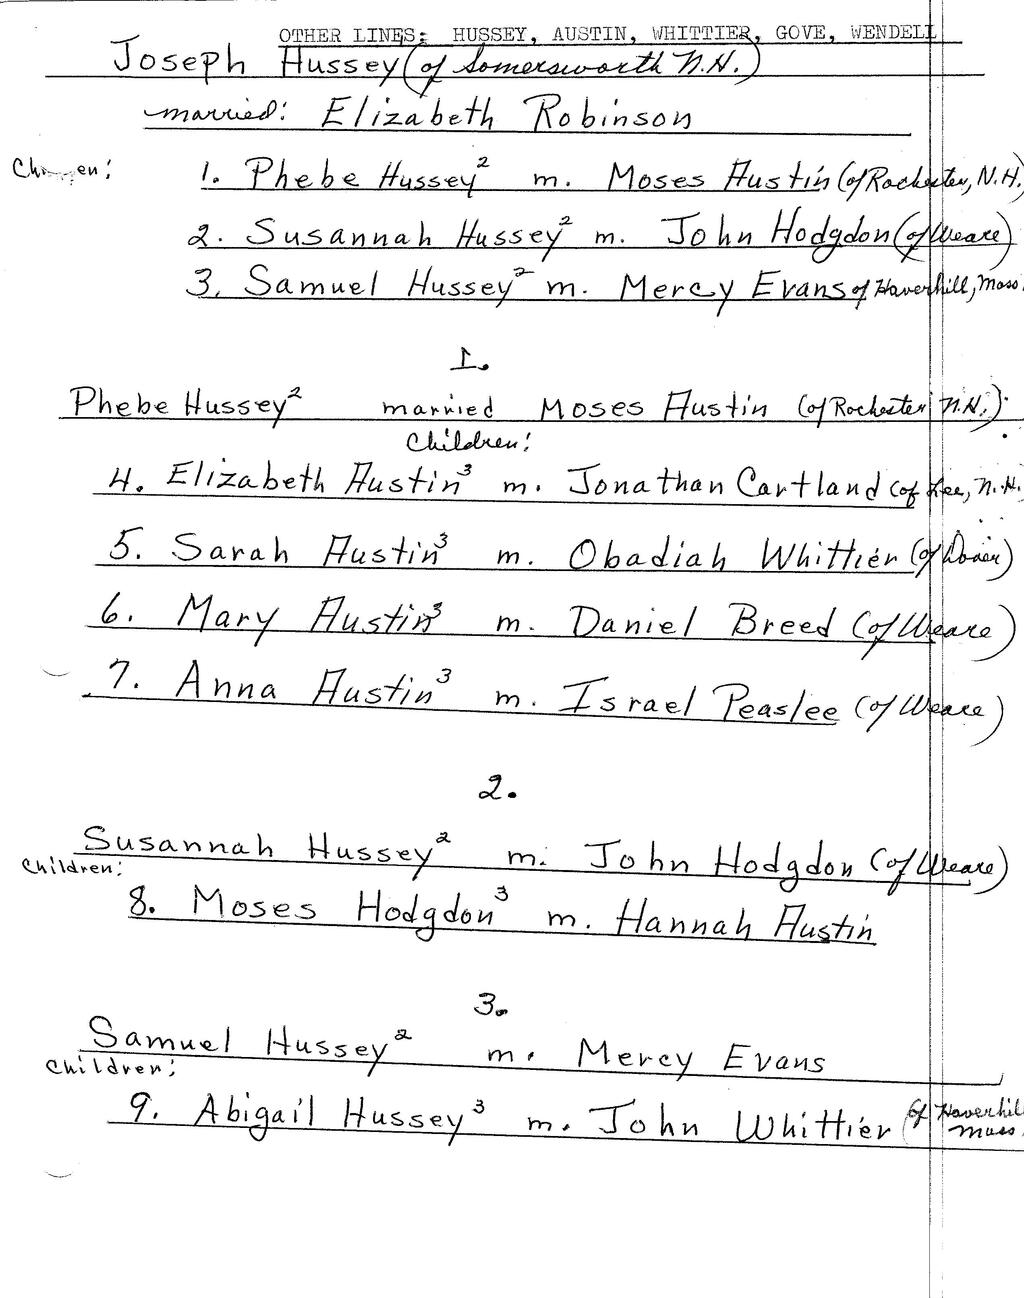 OTHER LINES: HUSSEY, AUSTIN, WHITTIER, GOVE, WENDELL
Joseph Hussey (of Somersworth N.H.)
married: Elizabeth Robinson
Children:
1. Phebe Hussey² m. Moses Austin (of Rochester, N.H.)
2. Susannah Hussey² m. John Hodgdon (of Weare)
3. Samuel Hussey² m. Mercy Evans of Haverhill, Mass.
1.
Phebe Hussey² married Moses Austin (of Rochester N.H.)
Children:
4. Elizabeth Austin³ m. Jonathan Cartland (of Lee, N.H.
5. Sarah Austin³ m. Obadiah Whittier (of Dover)
6. Mary Austin³ m. Daniel Breed (of Weare)
7. Anna Austin³ m. Israel Peaslee (of Weare)
2.
Susannah Hussey² m. John Hodgdon (of Weare)
Children:
8. Moses Hodgdon³ m. Hannah Austin
3.
Samuel Hussey² m. Mercy Evans
Children:
9. Abigail Hussey³ m. John Whittier (of Haverhill
Mass.